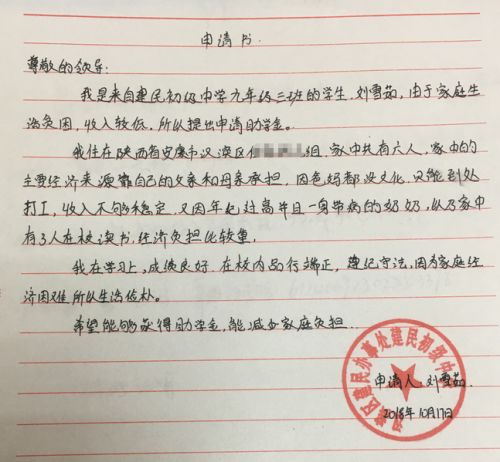 申请书.
尊敬的领导:
我是来自建民初级中学九年级三班的学生,刘雪茹,由于家庭生
活贫困,收入较低,所以提出申请助学金。
我住在陕西省安康市汉滨区 组,家中共有六人,家中的
主要经济来源靠自己的父亲和母亲承担,因爸妈都没文化,只能到处
打工,收入不够稳定,又因年纪过高并且一身带病的奶奶,以及家中
有3人在校读书,经济负担比较重,
我在学习上,成绩良好,在校内品行端正,遵纪守法,因为家庭经
济困难,所以生活俭朴。
希望能够获得助学金,能减少家庭负担..
申请人 刘雪茹.
2018年10月17日
汉滨区建民办事处建民初级中